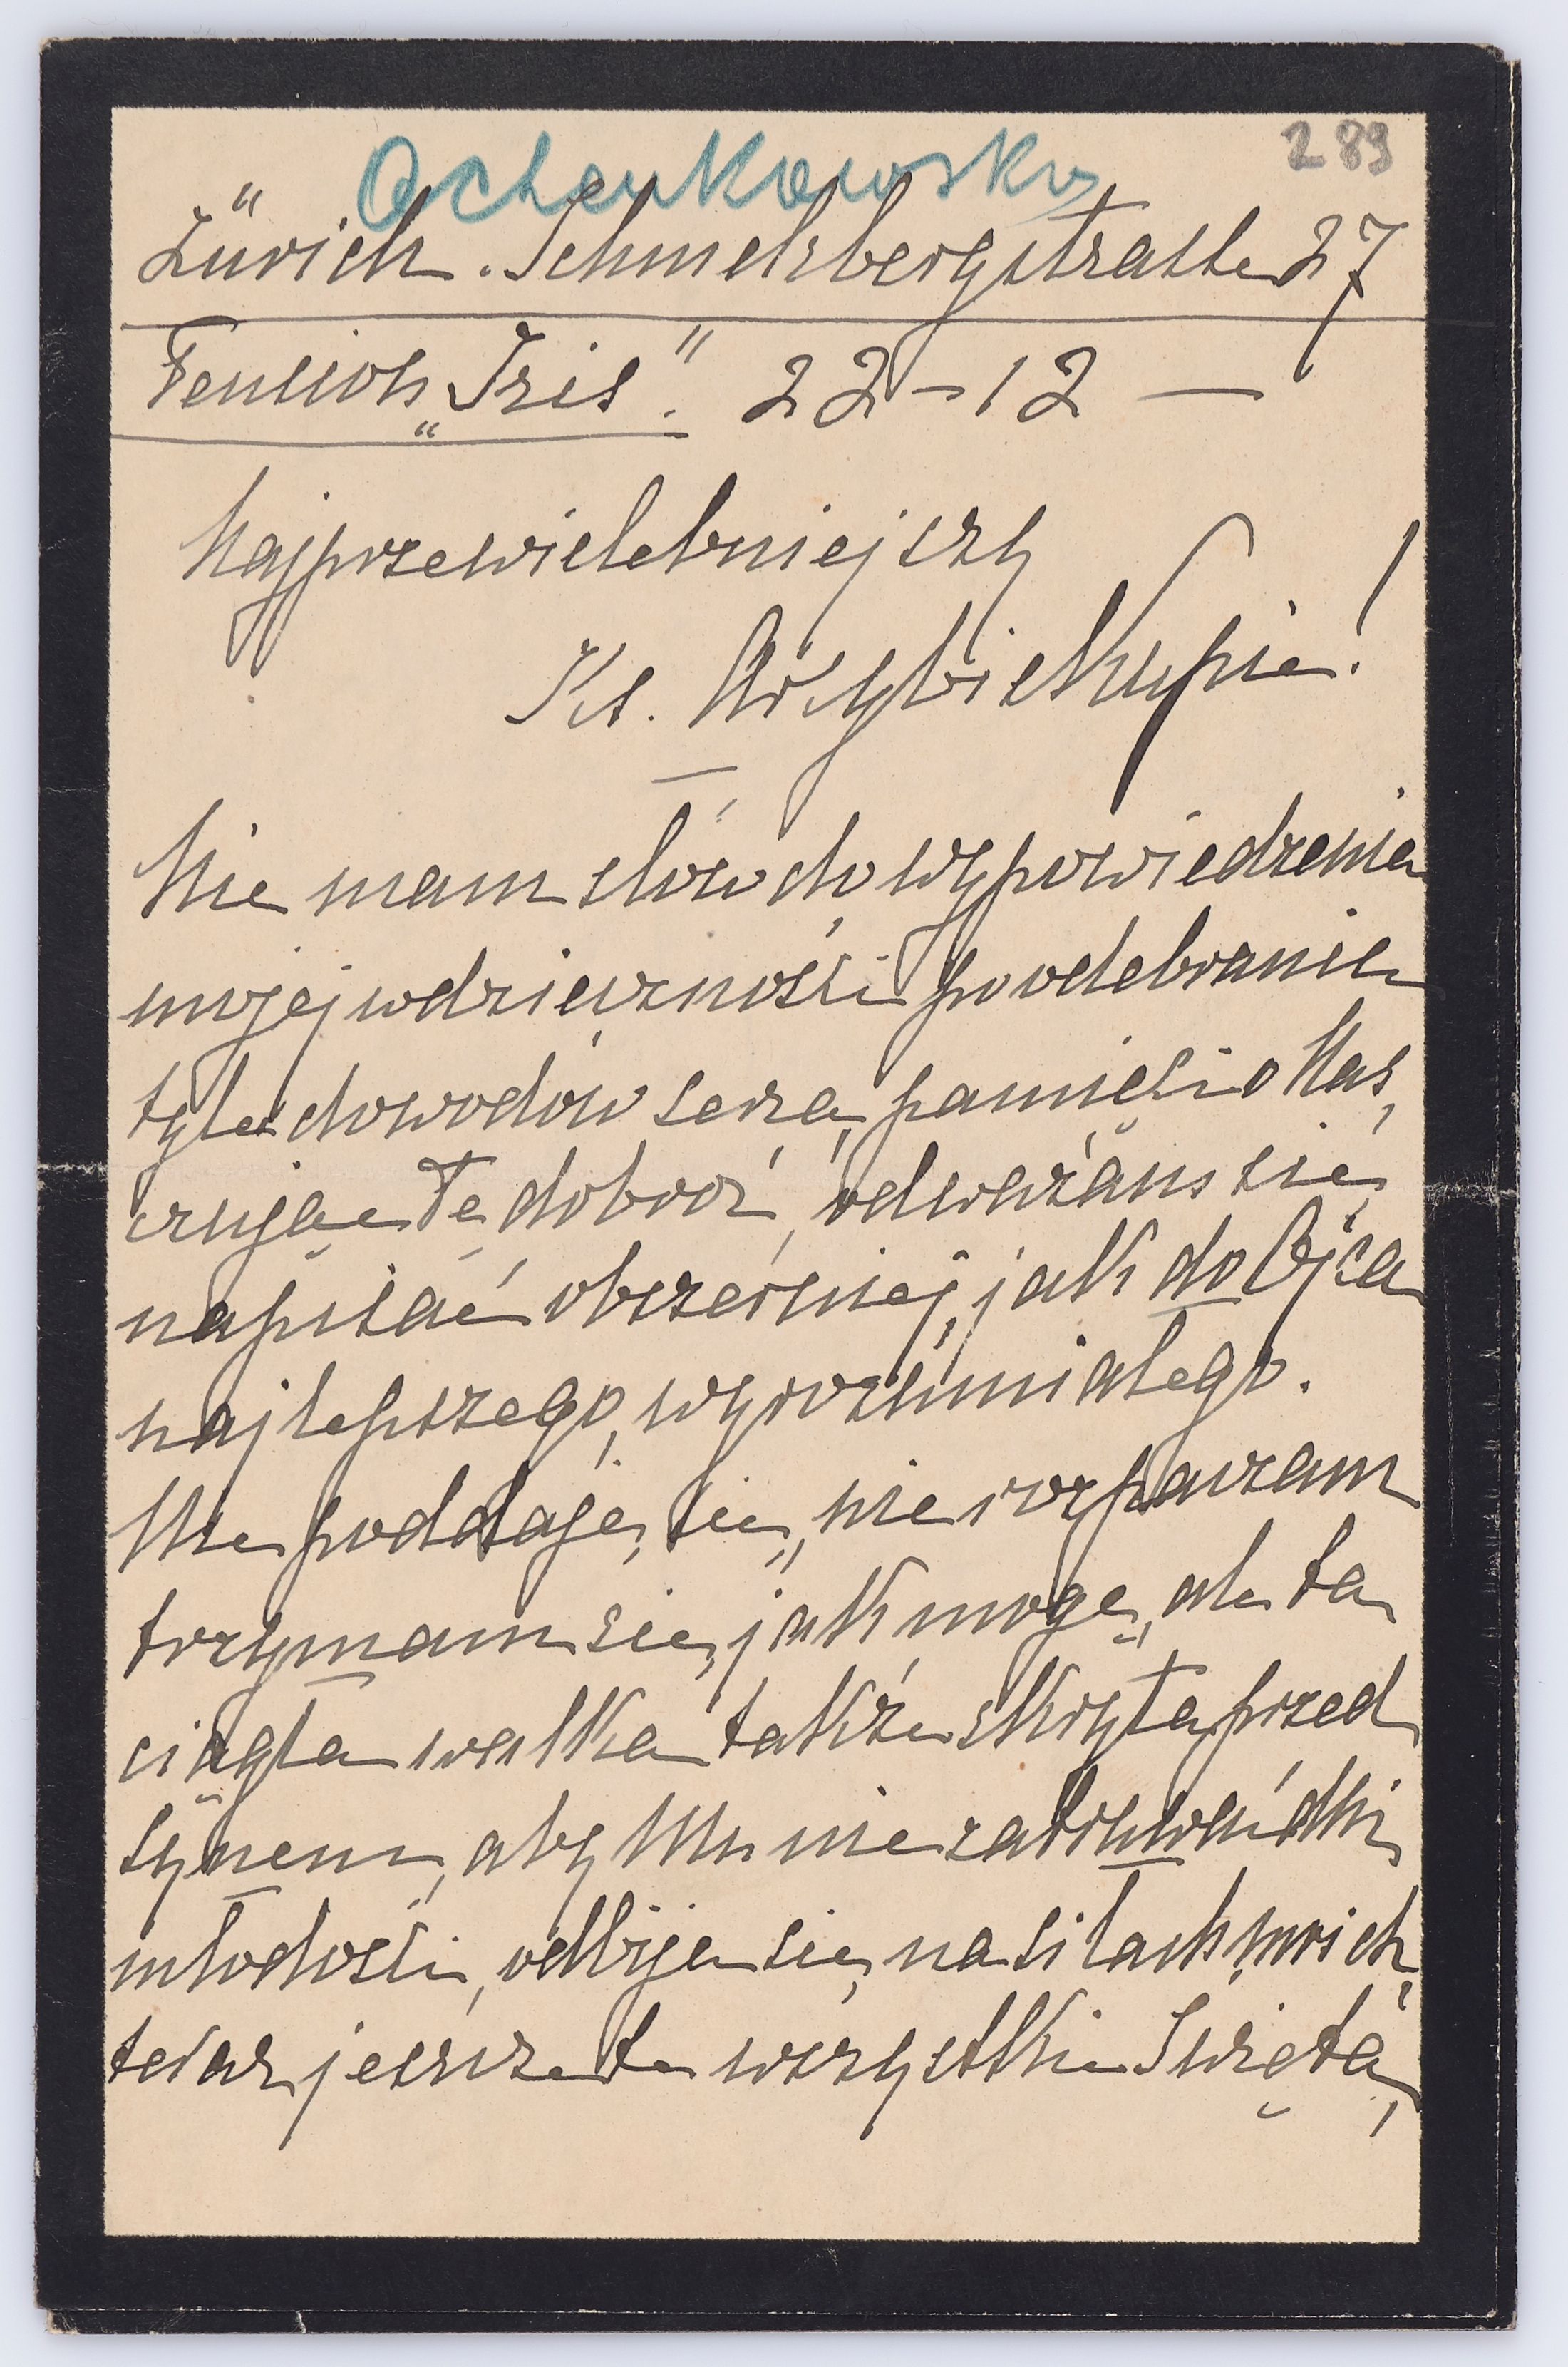 289
Ochenkowska
Zürich. Schmelzbergstrasse 27
Pension „Iris". 22-12 —
Najprzewielebniejszy
Ks. Arcybiskupie!
Nie mam słów do wypowiedzenia
mojej wdzięczności po odebraniu
tylu dowodów serca, pamięci o Nas,
czując Tę dobroć, odważam się
napisać obszerniej, jak do Ojca
najlepszego, wyrozumiałego.
Nie poddaję się, nie rozpaczam
trzymam się, jak mogę, ale ta
ciągła walka także skryta przed
synem, aby Mu nie zatruwać dni
młodości, odbija się na siłach moich,
teraz jeszcze te wszystkie Święta,